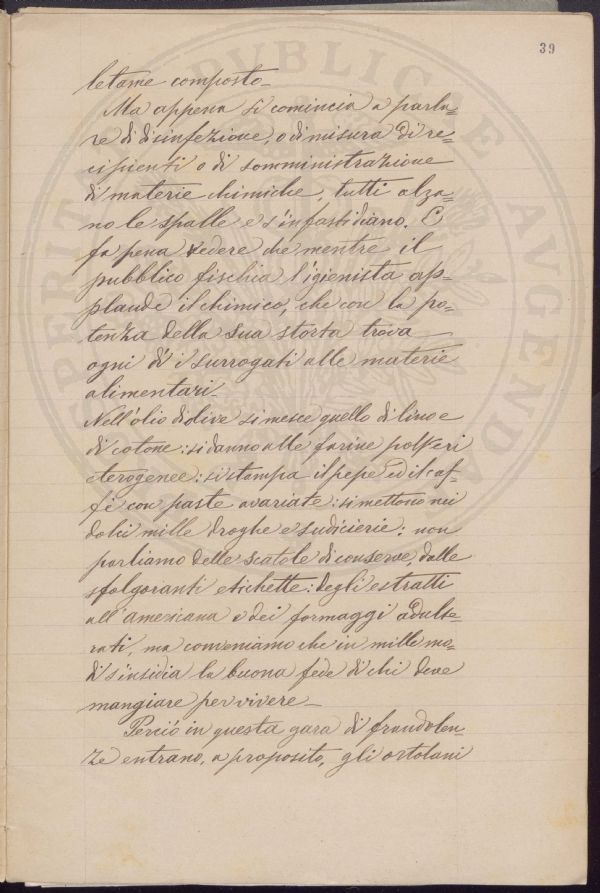 39
letame composto_
Ma appena si comincia a parla=
re di disinfezione, o di misura di re=
cipienti o di somministrazione
di materie chimiche, tutti alza=
no le spalle e s'infastidiano. E
fa pena vedere che mentre il
pubblico fischia l'igienista ap=
plaude il chimico, che con la po=
tenza della sua storta trova
ogni dì i surrogati alle materie
alimentari_
Nell'olio di olive si mesce quello di lino e
di cotone: si danno alle farine polveri
eterogenee: si stampa il pepe ed il caf=
fè con paste avariate: si mettono nei
dolci mille droghe e sudicierie: non
parliamo delle scatole di conserve, dalle
sfolgoranti etichette: degli estratti
all'americana e dei formaggi adulte=
rati, ma conveniamo che in mille mo=
di s'insidia la buona fede di chi deve
mangiare per vivere_
Perciò in questa gara di fraudolen=
ze entrano, a proposito, gli ortolani
SPERITAS PUBLICAE AUGENDAE